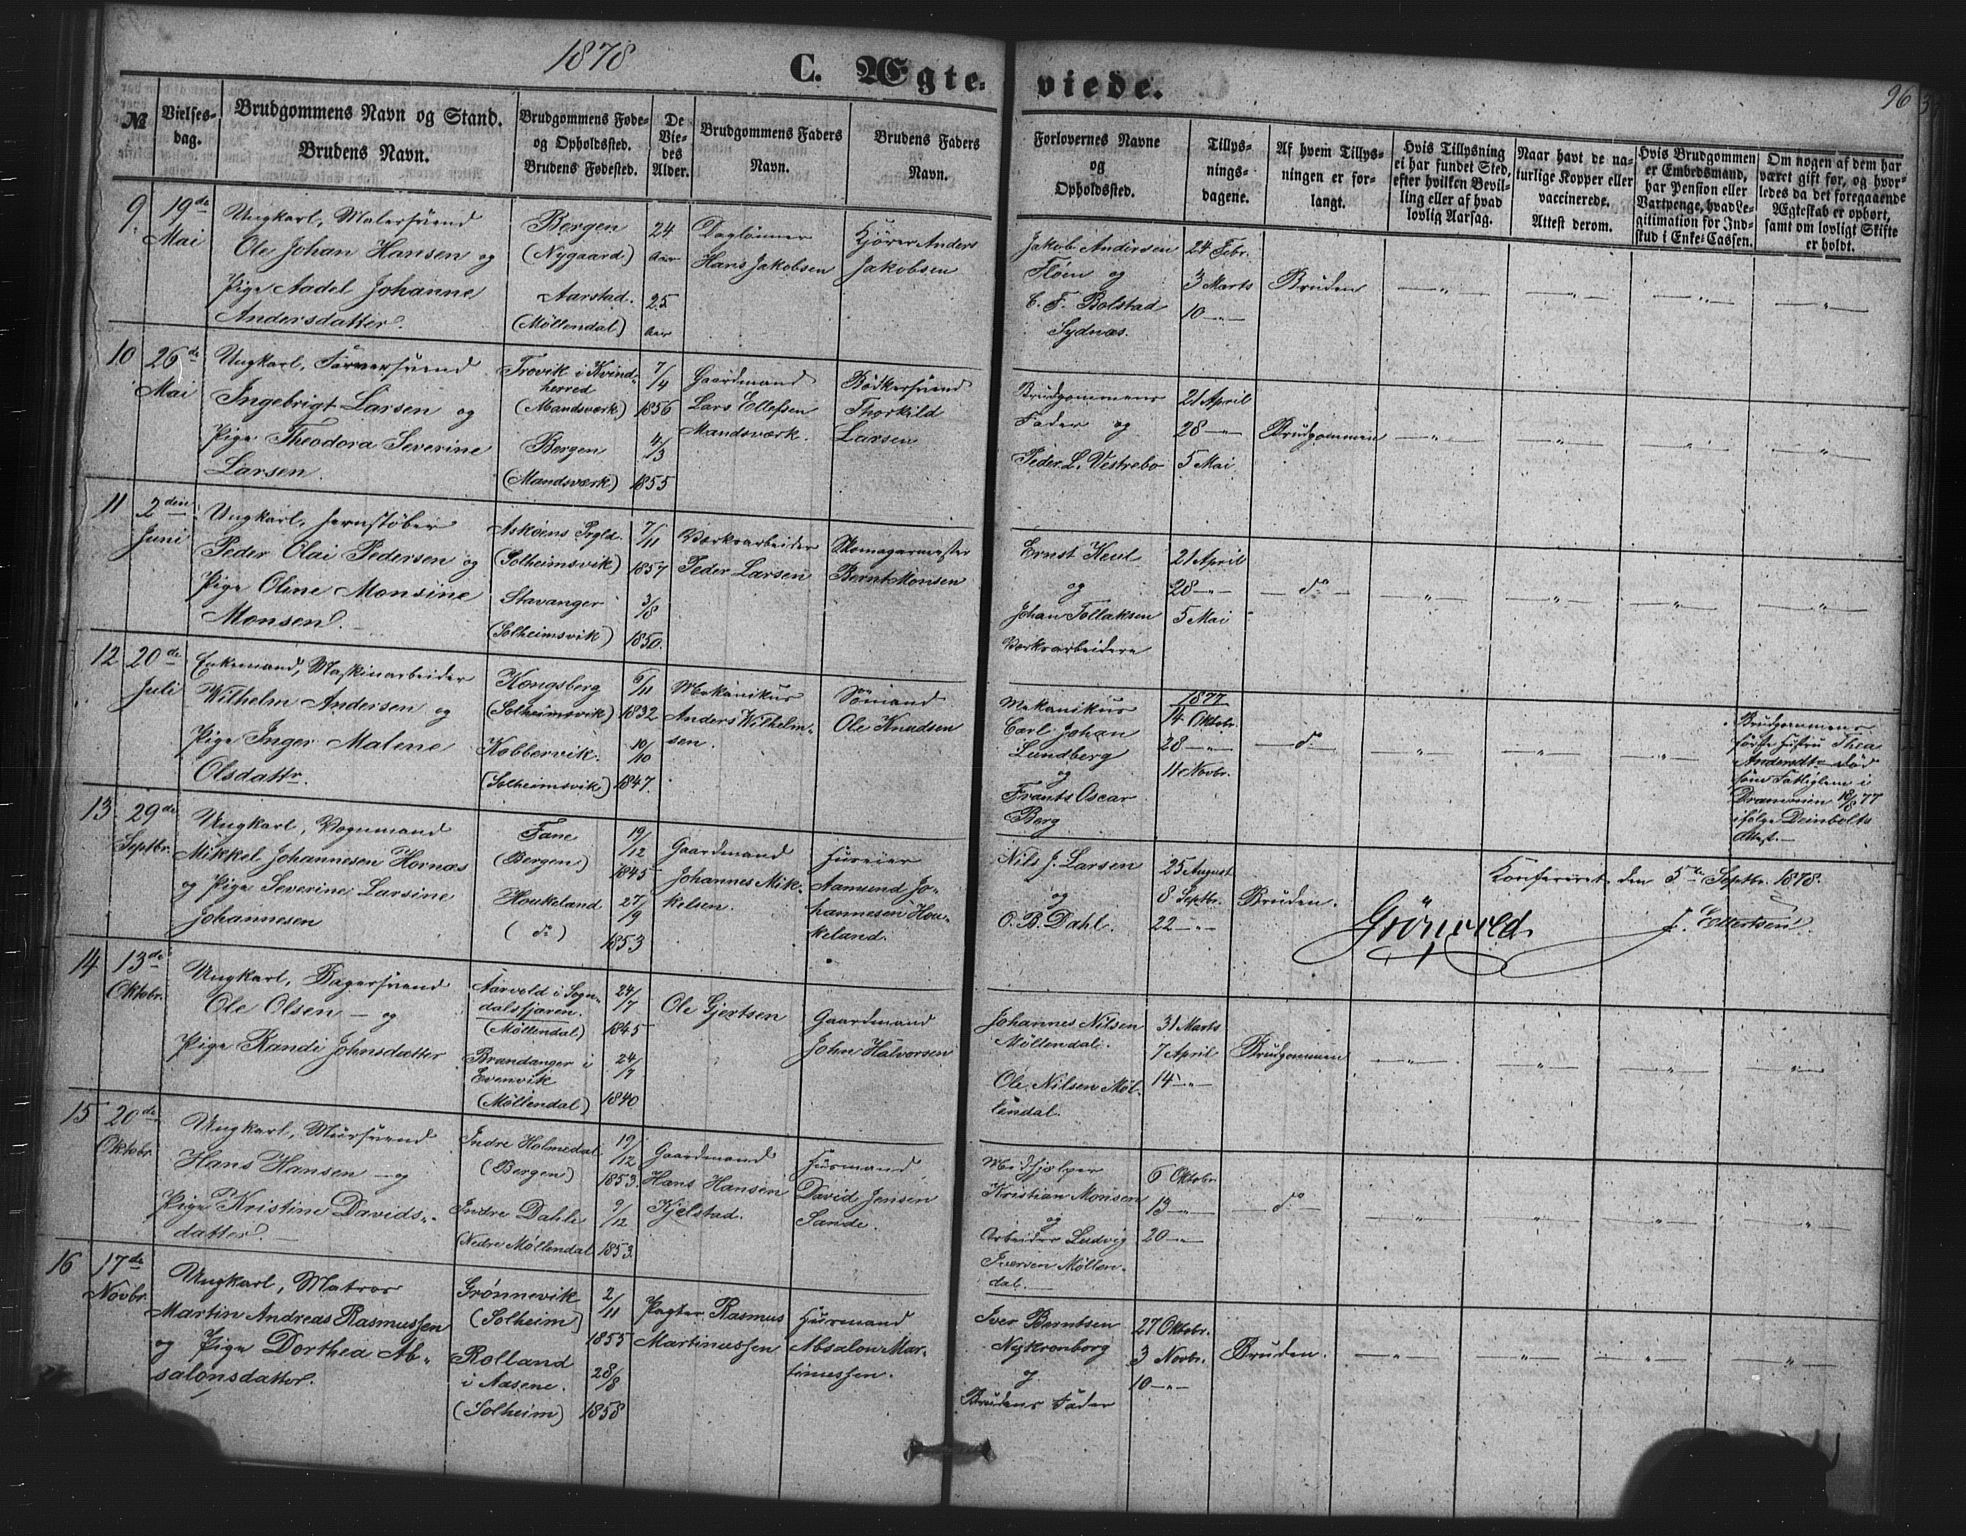 1878
C. Ægte-
viede.
96
№
Vielses-
dag.
Brudgommens Navn og Stand.
Brudens Navn.
Brudgommens Føde-
og Opholdssted.
Brudens Fødested.
De
Vie-
des
Alder.
Brudgommens Faders
Navn.
Brudens Faders
Navn.
Forlovernes Navne
og
Opholdssted.
Tillys-
nings-
dagene.
Af hvem Tillys-
ningen er for-
langt.
Hvis Tillysning
ei har fundet Sted,
efter hvilken Bevil-
ling eller af hvad
lovlig Aarsag.
Naar havt de na-
turlige Kopper eller
vaccinerede.
Attest derom.
Hvis Brudgommen
er Embedsmand,
har Pension eller
Vartpenge, hvad Le-
gitimation for Ind-
stud i Enke-Cassen.
Om nogen af dem har
været gift før, og hvor-
ledes da det foregaaende
Ægteskab er ophørt,
samt om lovligt Skifte
er holdt.
9
19de
Mai
Ungkarl, Malersvend
Ole Johan Hansen og
Pige Aadel Johanne
Andersdatter.
Bergen
(Nygaard)
Aarstad.
(Møllendal)
24
Aar
25
Aar
Daglønner
Hans Jakobsen
Kjører Anders
Jakobsen
Jakob Andersen
Fløen og
C. F. Bolstad
Sydnæs.
24 Febr.
3 Marts
10 —"—
Bruden
—"— —"— —"— "
10
26de
Mai
Ungkarl, Farversvend
Ingebrigt Larsen og
Pige Theodora Severine
Larsen
Trovik i Kvind-
herred
(Mandsværk)
Bergen
(Mandsværk)
7/4
1856
4/3
1855
Gaardmand
Lars Ellefsen
Mandsværk.
Bødkersvend
Thorkild
Larsen
Brudgommens
Fader og
Peder L. Vestrebo
21 April
28 —"—
5 Mai
Brudgommen
—"— —"— —"— —"—
11
2den
Juni
Ungkarl, Jernstøber
Peder Olai Pedersen og
Pige Oline Monsine
Monsen.
Askøens Prgld.
(Solheimsvik)
Stavanger
(Solheimsvik)
7/11
1857
3/8
1850.
Værksarbeider
Peder Larsen
Skomagermester
Bernt Monsen
Ernst Keul
og
Johan Tollaksen
Værksarbeidere
21 April
28 —"—
5 Mai
— do —
—"— —"— —"— —"—
12
20de
Juli
Enkemand, Maskinarbeider
Wilhelm Andersen og
Pige Inger Malene
Olsdattr.
Kongsberg
(Solheimsvik)
Kobbervik.
(Solheimsvik)
6/11
1832
10/10
1847.
Mekanikus
Anders Wilhelm-
sen.
Sømand
Ole Knudsen
Mekanikus
Carl Johan
Lundberg
og
Frants Oscar
Berg
1877
14 Oktobr.
28 —"—
11 Novbr.
— do —
—"— —"— —"—
Brudgommens
første Hustru Thea
Andersdtr død
som Fattiglem i
Drammen 18/8 77
ifølge Deinbolts
Attest.—
13
29de
Septbr.
Ungkarl, Vognmand
Mikkel Johannesen Hornæs
og Pige Severine Larsine
Johannesen
Fane
(Bergen)
Houkeland
( do )
19/12
1845
27/9
1853
Gaardmand
Johannes Mik-
kelsen.
Huseier
Aamund Jo-
hannesen Hou-
keland.
Nils J. Larsen
og
O. B. Dahl.
25 August
8 Septbr.
22 —"—
Bruden.
Konfereret den 5te Septbr. 1878.
Grönvold.
J. Ellertsen
14
13de
Oktobr.
Ungkarl, Bagersvend
Ole Olsen — og
Pige Randi Johnsdatter
Aarvold i Sogn-
dalsfjæren.
(Møllendal)
Brandanger i
Evenvik
(Møllendal)
24/7
1845
24/7
1840
Ole Gjertsen
Gaardmand
John Halvorsen
Johannes Nilsen
Møllendal.
Ole Nilsen Møl-
lendal.
31 Marts
7 April
14 —"—
Brudgommen
—"— —"— —"— —"—
15
20de
Oktobr.
Ungkarl, Mursvend
Hans Hansen — og
Pige Kristine Davids-
datter.
Indre Holmedal
(Bergen)
Indre Dahle
(Nedre Møllendal
19/12
1853.
9/12
1853.
Gaardmand
Hans Hansen
Kjelstad.
Husmand
David Jensen
Sande.
Medhjælper
Kristian Monsen
og
Arbeider Ludvig
Iversen Møllen-
dal.
6 Oktobr.
13 —"—
20 —"—
— do —
—"— —"— —"— —"—
16
17de
Novbr.
Ungkarl, Matros
Martin Andreas Rasmussen
og Pige Dorthea Ab-
salonsdatter.
Grønnevik
(Solheim)
Rolland
i Aasene.
(Solheim)
2/11
1855
28/8
1858
Pagter Rasmus
Martinussen
Husmand
Absalon Mar-
tinussen.
Iver Berntsen
Nykronborg
og
Brudens Fader
27 Oktobr.
3 Novbr.
10 —"—
Bruden.
—"— —"— —"— —"—